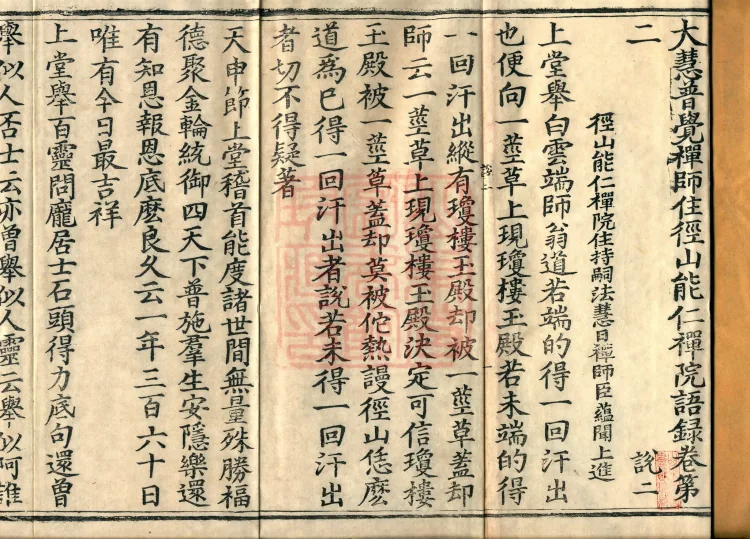 大慧普覺禪師住徑山能仁禪院語錄卷第
二
說二
徑山能仁禪院住持嗣法慧日禪師臣蘊聞上進
上堂舉白雲端師翁道若端的得一回汗出
也便向一莖草上現瓊樓玉殿若未端的得
一回汗出縱有瓊樓玉殿却被一莖草蓋却
師云一莖草上現瓊樓玉殿決定可信瓊樓
玉殿被一莖草蓋却莫被佗熱謾徑山恁麽
道爲已得一回汗出者說若未得一回汗出
者切不得疑著
天申節上堂稽首能度諸世間無量殊勝福
德聚金輪統御四天下普施羣生安隱樂還
有知恩報恩底麽良久云一年三百六十日
唯有今日最吉祥
上堂舉百靈問龐居士石頭得力底句還曾
舉似人否士云亦曾舉似人靈云舉似阿誰